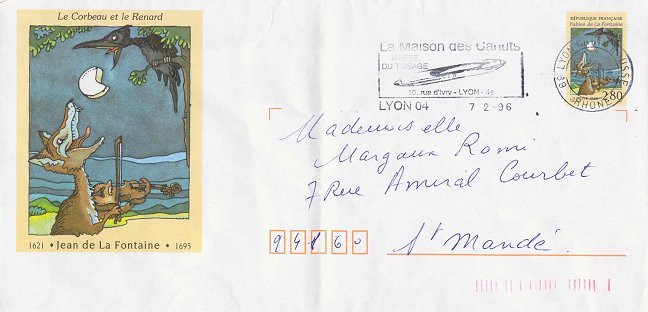 Le Corbeau et le Renard
1621 • Jean de La Fontaine • 1695
La Maison des Canuts
MUSÉE
DU TISSAGE
10, rue d'Ivry - LYON - 4e
LYON 04 7 2-96
RÉPUBLIQUE FRANÇAISE
Fables de La Fontaine
2,80
LYON
RHONE
Mademoiselle
Margaux Romi
7 Rue Amiral Courbet
94160 St Mandé.